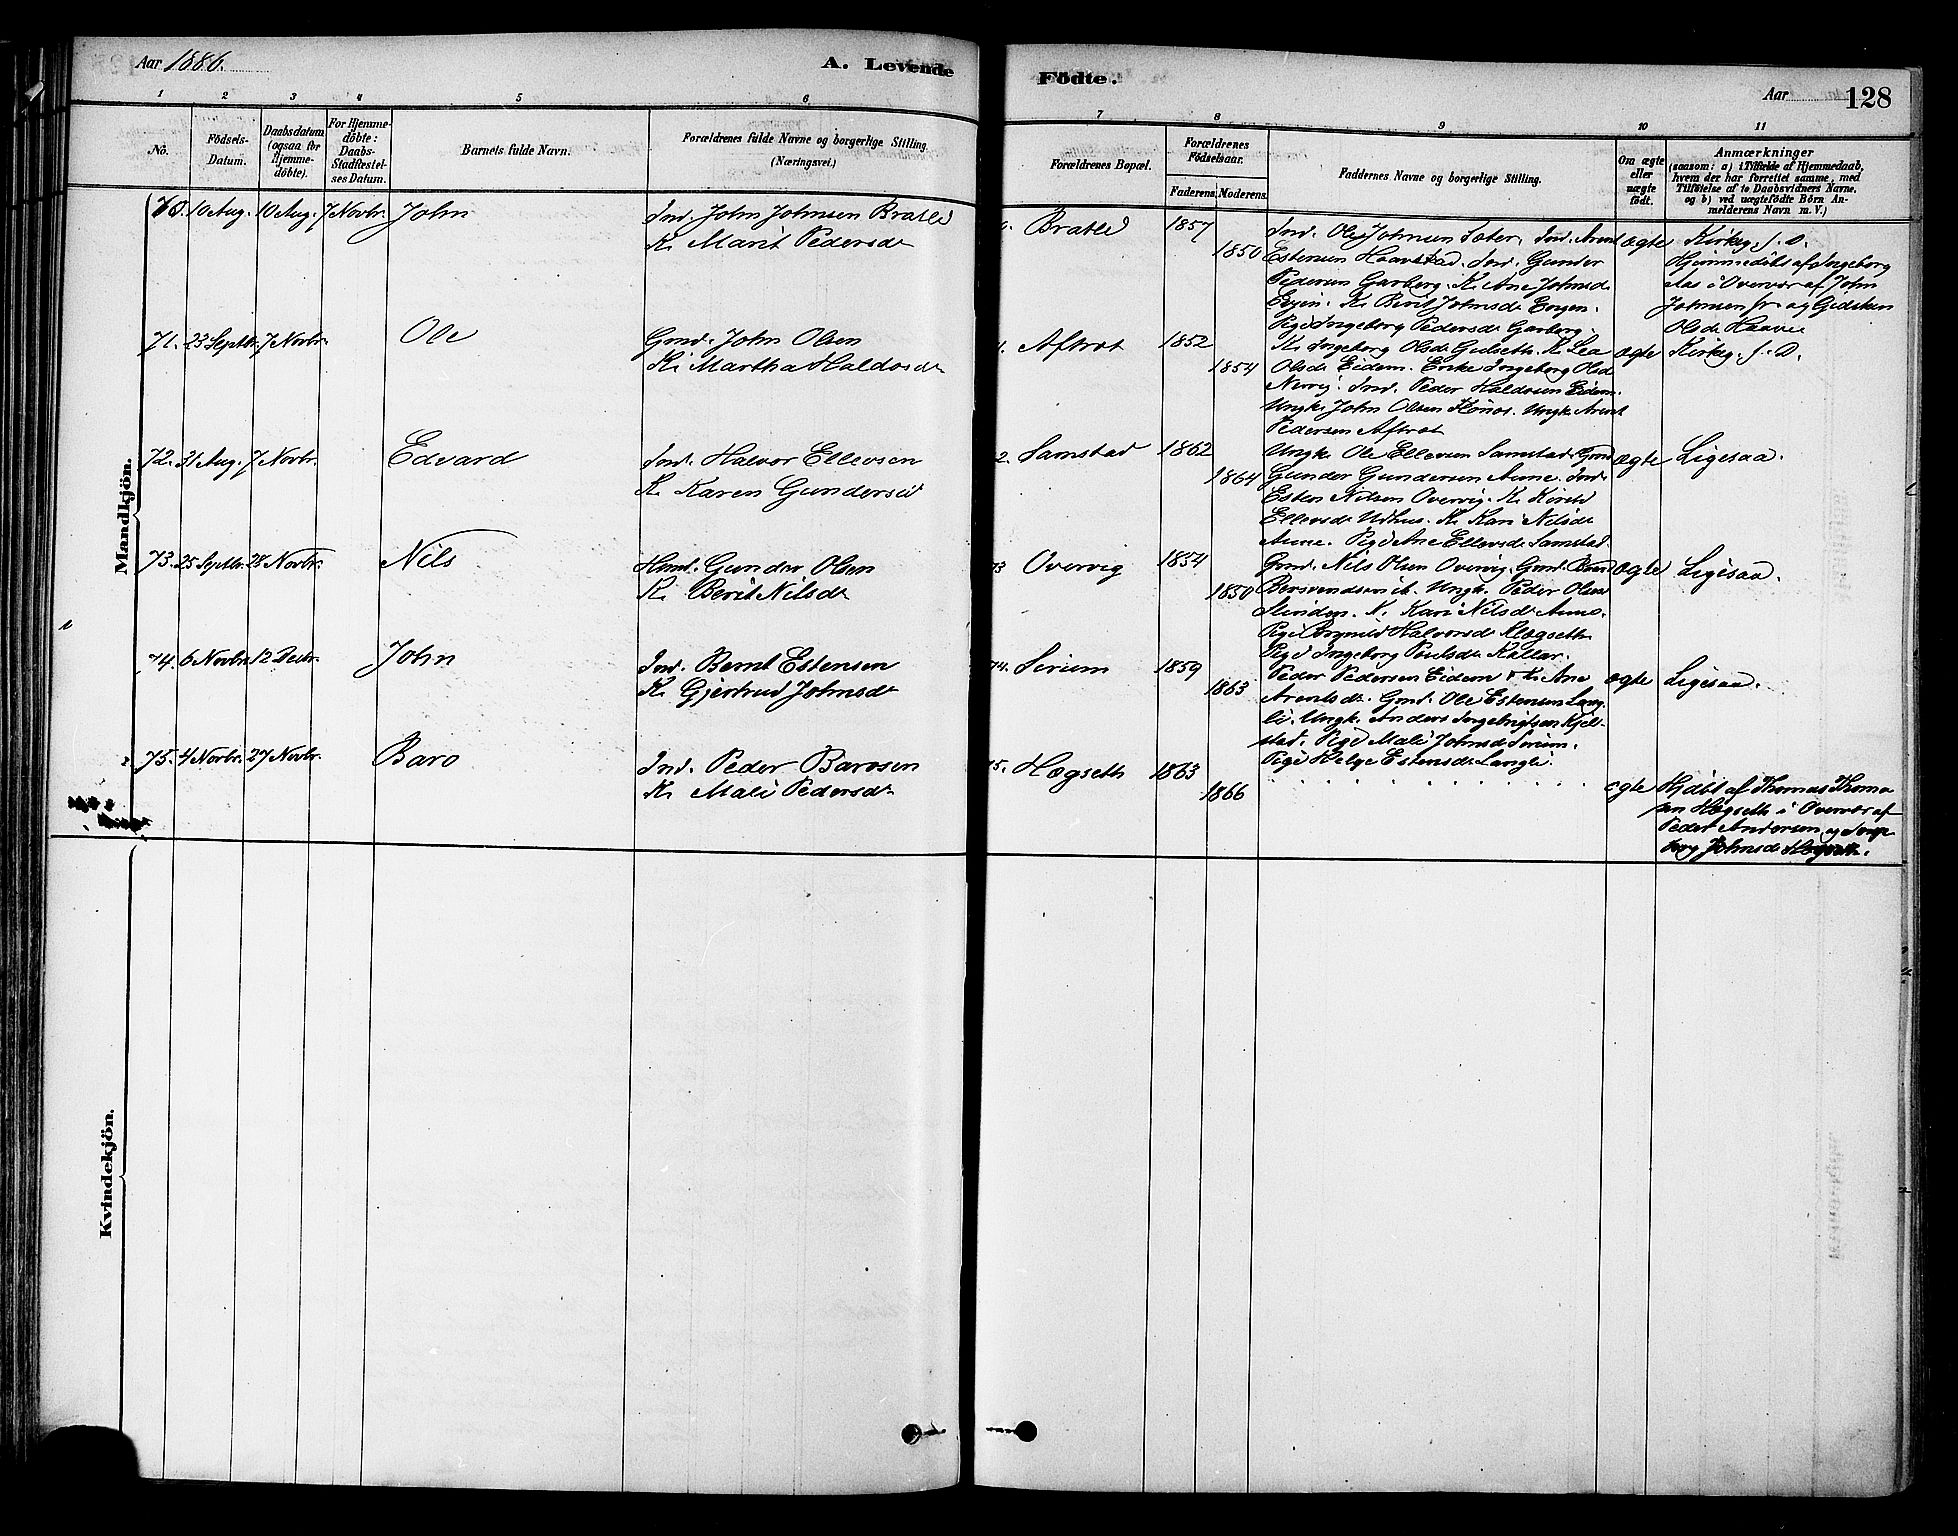 Aar 1886.
A. Levende
Födte.
Aar
128
1 2 3 4 5 6 7 8 9 10 11
No.
Födsels-
Datum.
Daabsdatum
(ogsaa for
Hjemme-
döbte).
For Hjemme-
döbte:
Daabs-
Stadfæstel-
ses Datum.
Barnets fulde Navn.
Forældrenes fulde Navne og borgerlige Stilling.
(Næringsvei.)
Forældrenes Bopæl.
Forældrenes
Födselsaar.
Faderens. Moderens.
Faddernes Navne og borgerlige Stilling.
Om ægte
eller
uægte
födt.
Anmærkninger
(saasom: a) i Tilfælde af Hjemmedaab,
hvem der har forrettet samme, med
Tilföielse af to Daabsvidners Navne.
og b) ved uægtefödte Börn An-
melderens Navn m. V.)
Mandkjön.
70. 10 Aug. 10 Aug. 7 Novbr. John
Ind. John Johnsen Bratli
K. Marit Pedersd.
Bratli 1857
1850
Ind. Ole Johnsen Sæter. Ind. Arent
Estensen Haavstad. Ind. Gunder
Pedersen Garberg. K. Ane Johnsd.
K. Berit Johnsd.
Pige Ingeborg Pedersd. Garberg.
ægte
Kirkeg. f. D.
Hjemmedöbt af Ingeborg
Aas i Overvær af John
Johnsen fr. og
Olsd.
71. 23 Septbr. 7 Novbr. Ole
Gmd. John Olsen
K. Martha Haldosd.
Aftret 1852
1854
K. Ingeborg Olsd. Gulseth. K. Lea
Olsd. Eidem. Enke Ingeborg Olsd.
Nervig. Ind. Peder Haldosen Eidem.
Ungk. John Olsen Ungk. Arent
Pedersen Aftret
ægte
Kirkeg. f. D.
72. 31 Aug. 7 Novbr. Edvard
Ind. Halvor Ellevsen
K. Karen Gundersd.
Samstad 1862
1864
Ungk. Ole Ellevsen Samstad. Gmd.
Gunder Gundersen Aune. Ind.
Esten Nilsen Overvig. K.
Ellevsd. Udhus. K. Kari Nilsd.
Aune. Pige Ane Ellevsd. Samstad.
ægte
Ligesaa.
73. 25 Septbr. 28 Novbr. Nils
Gunder Olsen
K. Berit Nilsd.
Overvig 1854
1850
Gmd. Nils Olsen Overvig. Gmd.
Ungk. Peder Olsen
K. Kari Nilsd. Aune.
Pige Halvorsd.
Pige Ingeborg Poulsd.
ægte
Ligesaa.
74. 6 Novbr. 12 Decbr. John
Ind. Bernt Estensen
K. Gjertrud Johnsd.
Serium 1859
1863
Peder Pedersen Eidem & K. Ane
Arentsd. Gmd. Ole Estensen Lang-
li. Ungk. Anders Ingebrigtsen Kjel-
stad. Pige Mali Johnsd. Serium.
Pige Helge Estensd. Langli.
ægte
Ligesaa.
75. 4 Novbr. 27 Novbr. Baro
Ind. Peder Barosen
K. Mali Pedersd.
Hægseth 1863
1866
ægte
Hjdöbt af Thomas Thoma-
sen Hægseth i Overvær af
Peder Andersen og Inge-
borg Johnsd. Hægseth.
Kvindekjön.